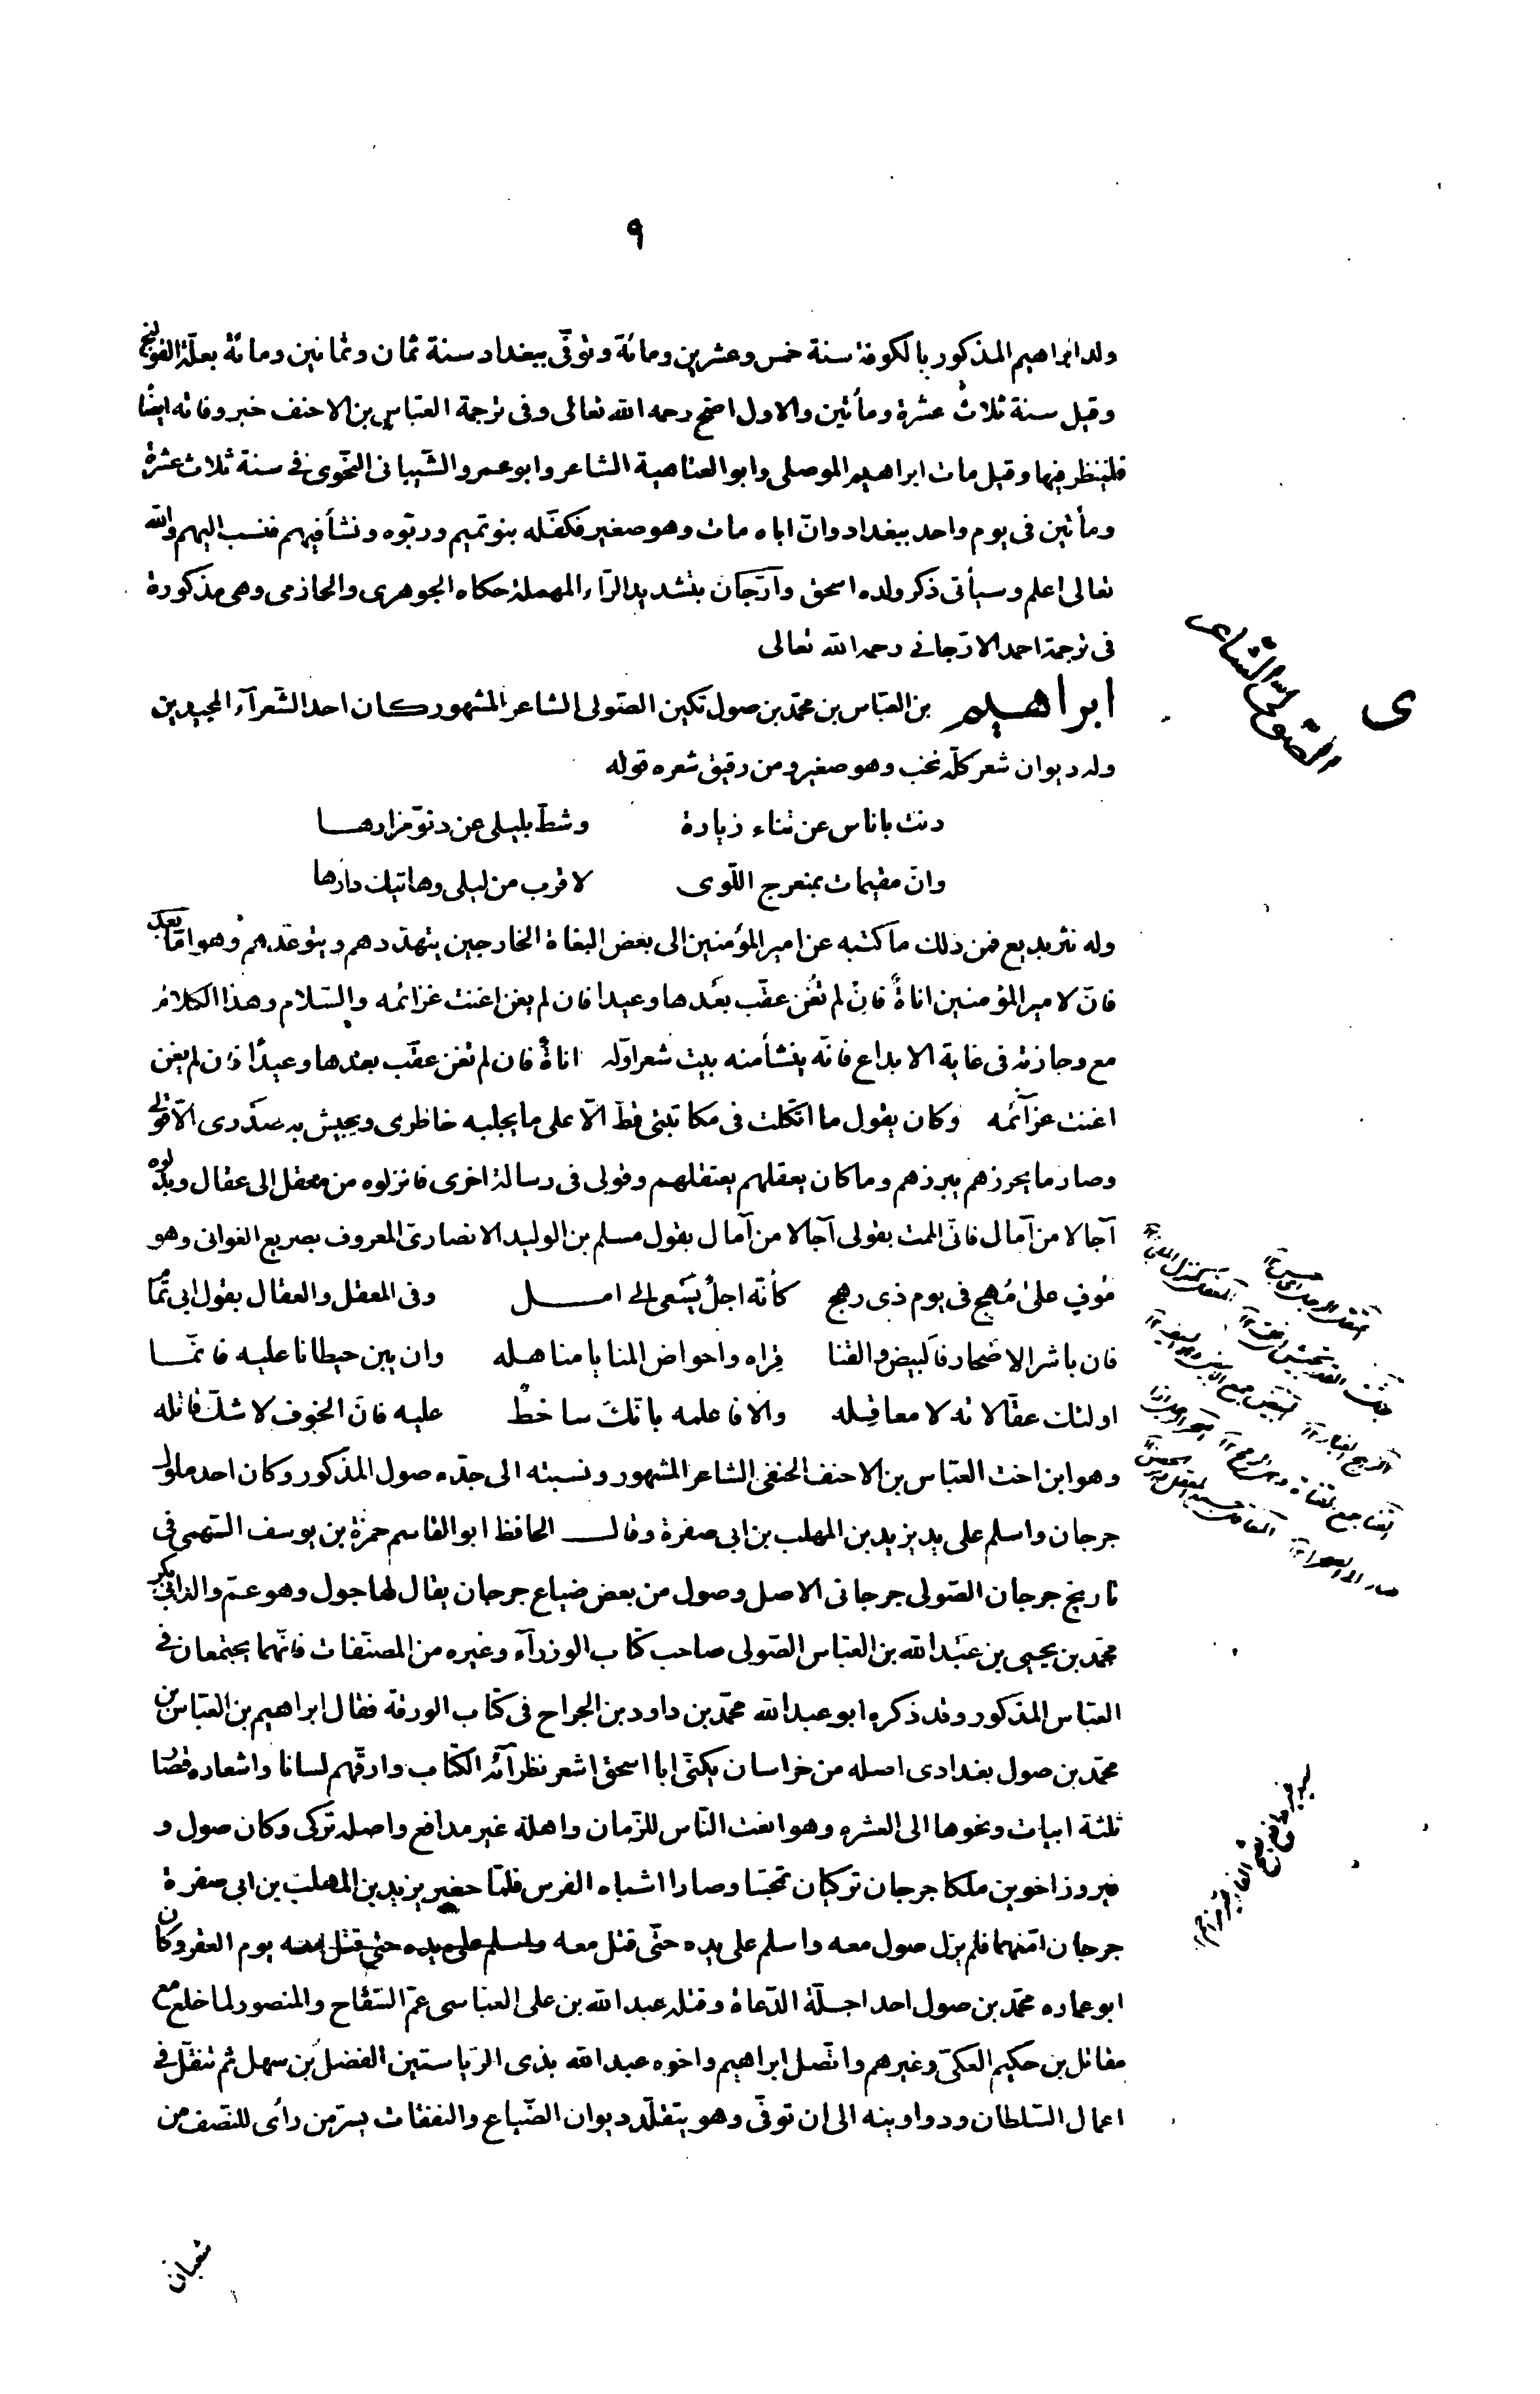 ٩
ولد ابراهيم المذكور بالكوفة سنة خمس وعشرين ومائة وتوفّى ببغداد سنة ثمان وثمانين ومائة بعلّة القولنج
وقيل سنة ثلاث عشرة ومأتين والاول اصح رحمه الله تعالى وفى ترجمة العبّاس بن الاحنف خبر وفاته ايضًا
فلينظر فيها وقيل مات ابراهيم الموصلى وابو العتاهية الشاعر وابو عمرو الشّيبانى النّحوى فى سنة ثلاث عشرة
ومأتين فى يوم واحد ببغداد وانّ اباه مات وهو صغير فكفّله بنو تميم وربّوه ونشأ فيهم فنسب اليهم والله
تعالى اعلم وسيأتى ذكر ولده اسحق وارّجان بتشديد الرّاء المهملة حكاه الجوهرى والحازمى وهى مذكورة
فى ترجمة احمد الارّجانى رحمه الله تعالى
الصّولىّ الشّاعر
ى
ابراهيم بن العبّاس بن محمّد بن صول تكين الصّولى الشاعر المشهور كان احد الشّعرآء المجيدين
وله ديوان شعر كلّه نخب وهو صغير ومن رقيق شعره قوله
دنت باناس عن تناء زيارة وشطّ بليلى عن دنوّ مزارها
وانّ مقيمات بمنعرج اللّوى لا قرب من ليلى وهاتيك دارها
وله نثر بديع فمن ذلك ما كتبه عن امير المؤمنين الى بعض البغاة الخارجين يتهدّدهم ويتوعّدهم وهو امّا بعد
فانّ لامير المؤمنين اناةً فان لم تغن عقّب بعدها وعيدا فان لم يغن اغنت عزائمه والسّلام وهذا الكلام
مع وجازته فى غاية الابداع فانّه ينشأ منه بيت شعر اوّله اناةٌ فان لم تغن عقّب بعدها وعيدًا فان لم يغن
اغنت عزآئمه وكان يقول ما اتّكلت فى مكاتبتى قطّ الّا على ما يجلبه خاطرى ويجيش به صدرى الّا قولى
وصار ما يحرزهم يبرزهم وما كان يعقلهم يعتقلهم وقولى فى رسالة اخرى فانزلوه من معقل الى عقال وبدّلوه
آجالا من آمال فانّى الممت بقولى آجالا من آمال بقول مسلم بن الوليد الانصارىّ المعروف بصريع الغوانى وهو
مُوفٍ على مُهج فى يوم ذى رهج كأنّه اجلٌ يسعى الى امل وفى المعقل والعقال بقول ابى تمّام
فان باشر الاصحار فالبيض والقنا قِراه واحواض المنايا مناهله وان يبن حيطانا عليه فانّما
اولئك عقّالاته لا معاقله والّا فاعلمه بانّك ساخطٌ عليه فانّ الخوف لا شكّ قاتله
وهو ابن اخت العبّاس بن الاحنف الحنفى الشاعر المشهور ونسبته الى جدّه صول المذكور وكان احد ملوك
جرجان واسلم على يد يزيد بن المهلب بن ابى صفرة وقال الحافظ ابو القاسم حمزة بن يوسف السّهمى فى
تاريخ جرجان الصّولى جرجانى الاصل وصول من بعض ضياع جرجان يقال لها جول وهو عمّ والد ابى بكر
محمّد بن يحيى بن عبد الله بن العبّاس الصّولى صاحب كتاب الوزرآء وغيره من المصنّفات فانّهما يجتمعان فى
العبّاس المذكور وقد ذكره ابو عبد الله محمّد بن داود بن الجراح فى كتاب الورقة فقال ابراهيم بن العبّاس بن
محمّد بن صول بغدادى اصله من خراسان يكنّى ابا اسحق اشعر نظرآئه الكتّاب وارقّهم لسانا واشعاره قصار
ثلثة ابيات ونحوها الى العشره وهو انعت النّاس للزّمان واهله غير مدافع واصله تركى وكان صول و
فيروز اخوين ملكا جرجان تركيان تمجّسا وصارا اشباه الفرس فلمّا حضر يزيد بن المهلّب بن ابى صفرة
جرجان امّنهما فلم يزل صول معه واسلم على يده حتّى قتل معه واسلم على يده حتى قتل معه يوم العقر وكان
ابو عماره محمّد بن صول احد اجلّة الدّعاة وقتله عبد الله بن على العبّاسى عمّ السّفّاح والمنصور لما خلع مع
مقاتل بن حكيم العكىّ وغيرهم واتّصل ابراهيم واخوه عبد الله بذى الرّياستين الفضل بن سهل ثم تنقّل فى
اعمال السّلطان ودواوينه الى ان توفّى وهو يتقلّد ديوان الضّياع والنفقات بسرّ من رأى للنّصف من
شعبان